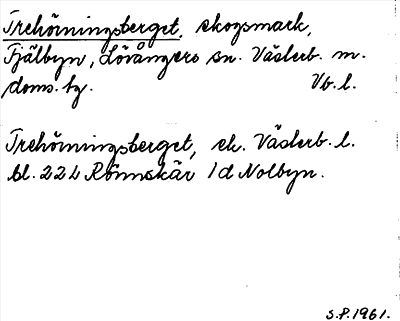 Trehörningsberget, skogsmark,
Fjälbyn, Lövångers sn. Västerb. n.
doms. hg. Vb. l.
Trehörningsberget, ek. Västerb. l.
bl. 22 L Rönnskär 1d Nolbyn.
S.P. 1961.